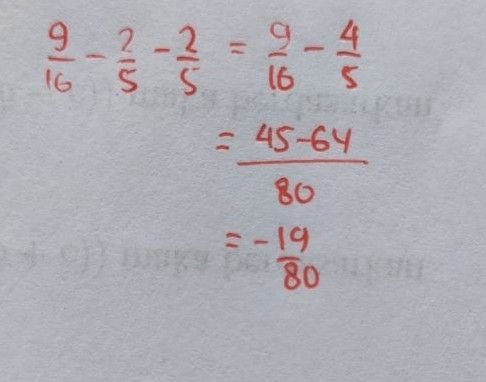 9/16 - 2/5 - 2/5 = 9/16 - 4/5
= 45-64/80
= -19/80